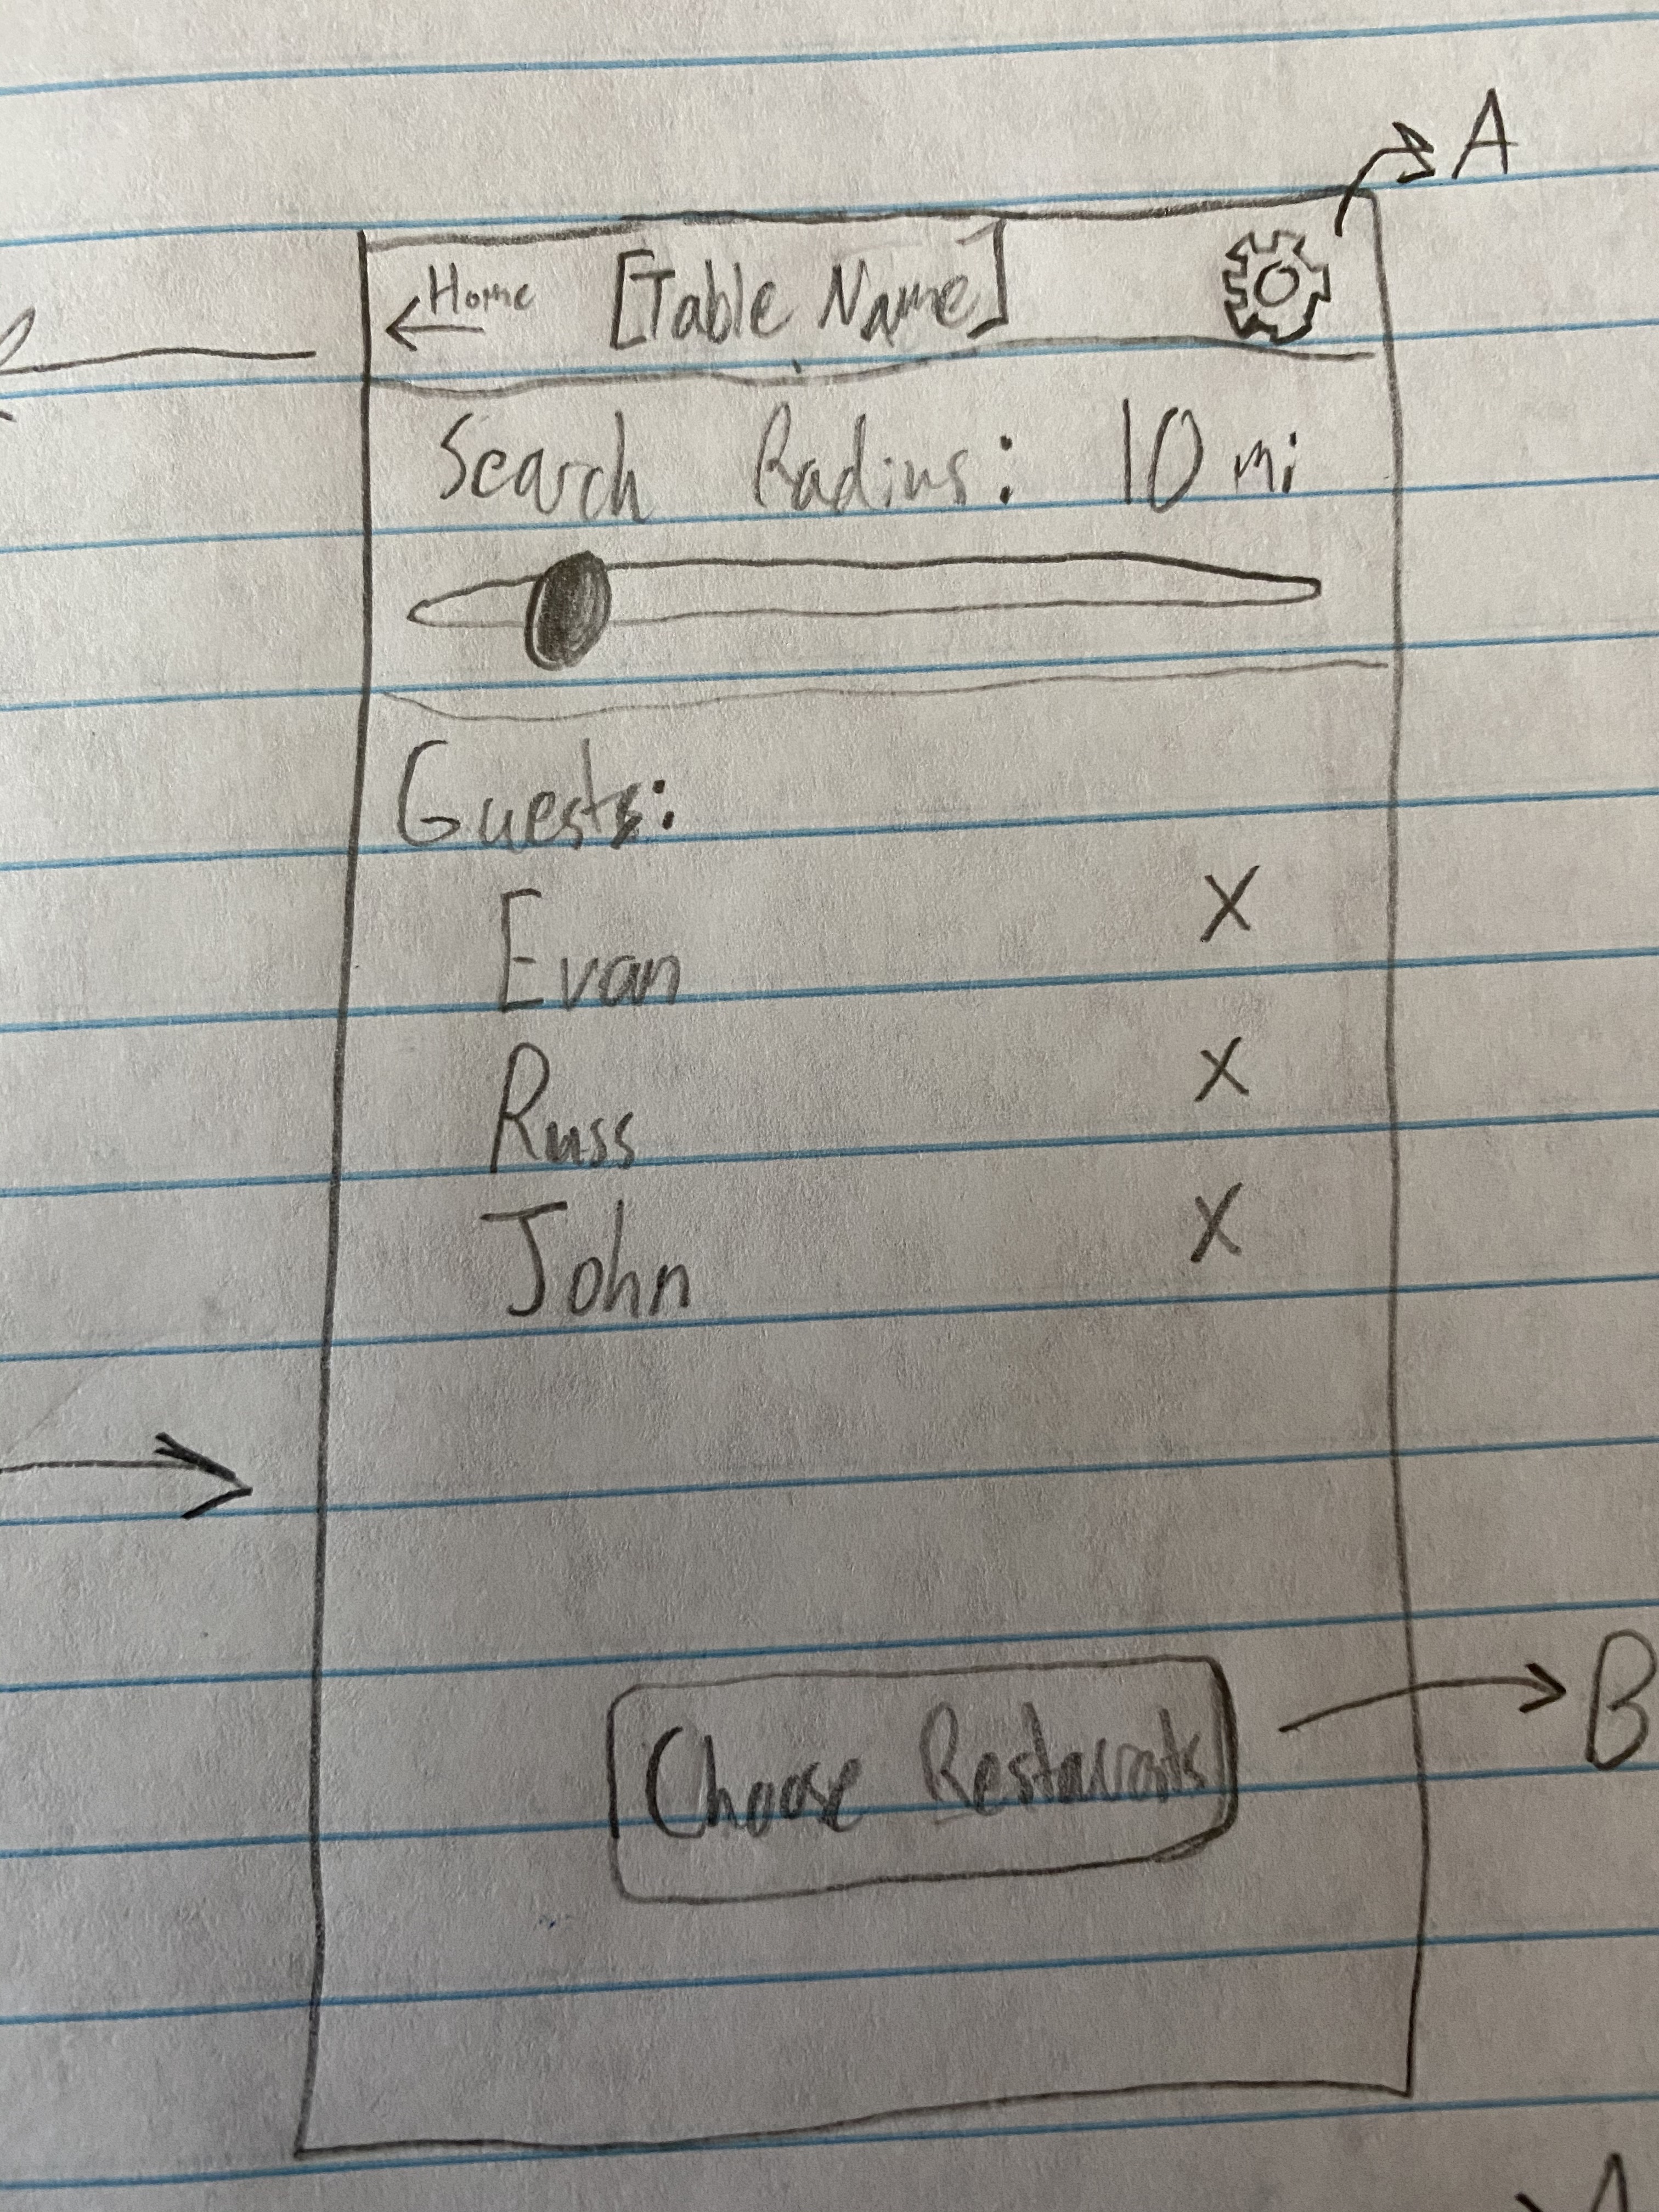 A
Home
[Table Name]
Search Radius: 10 mi
Guests:
Evan X
Russ X
John X
Choose
B